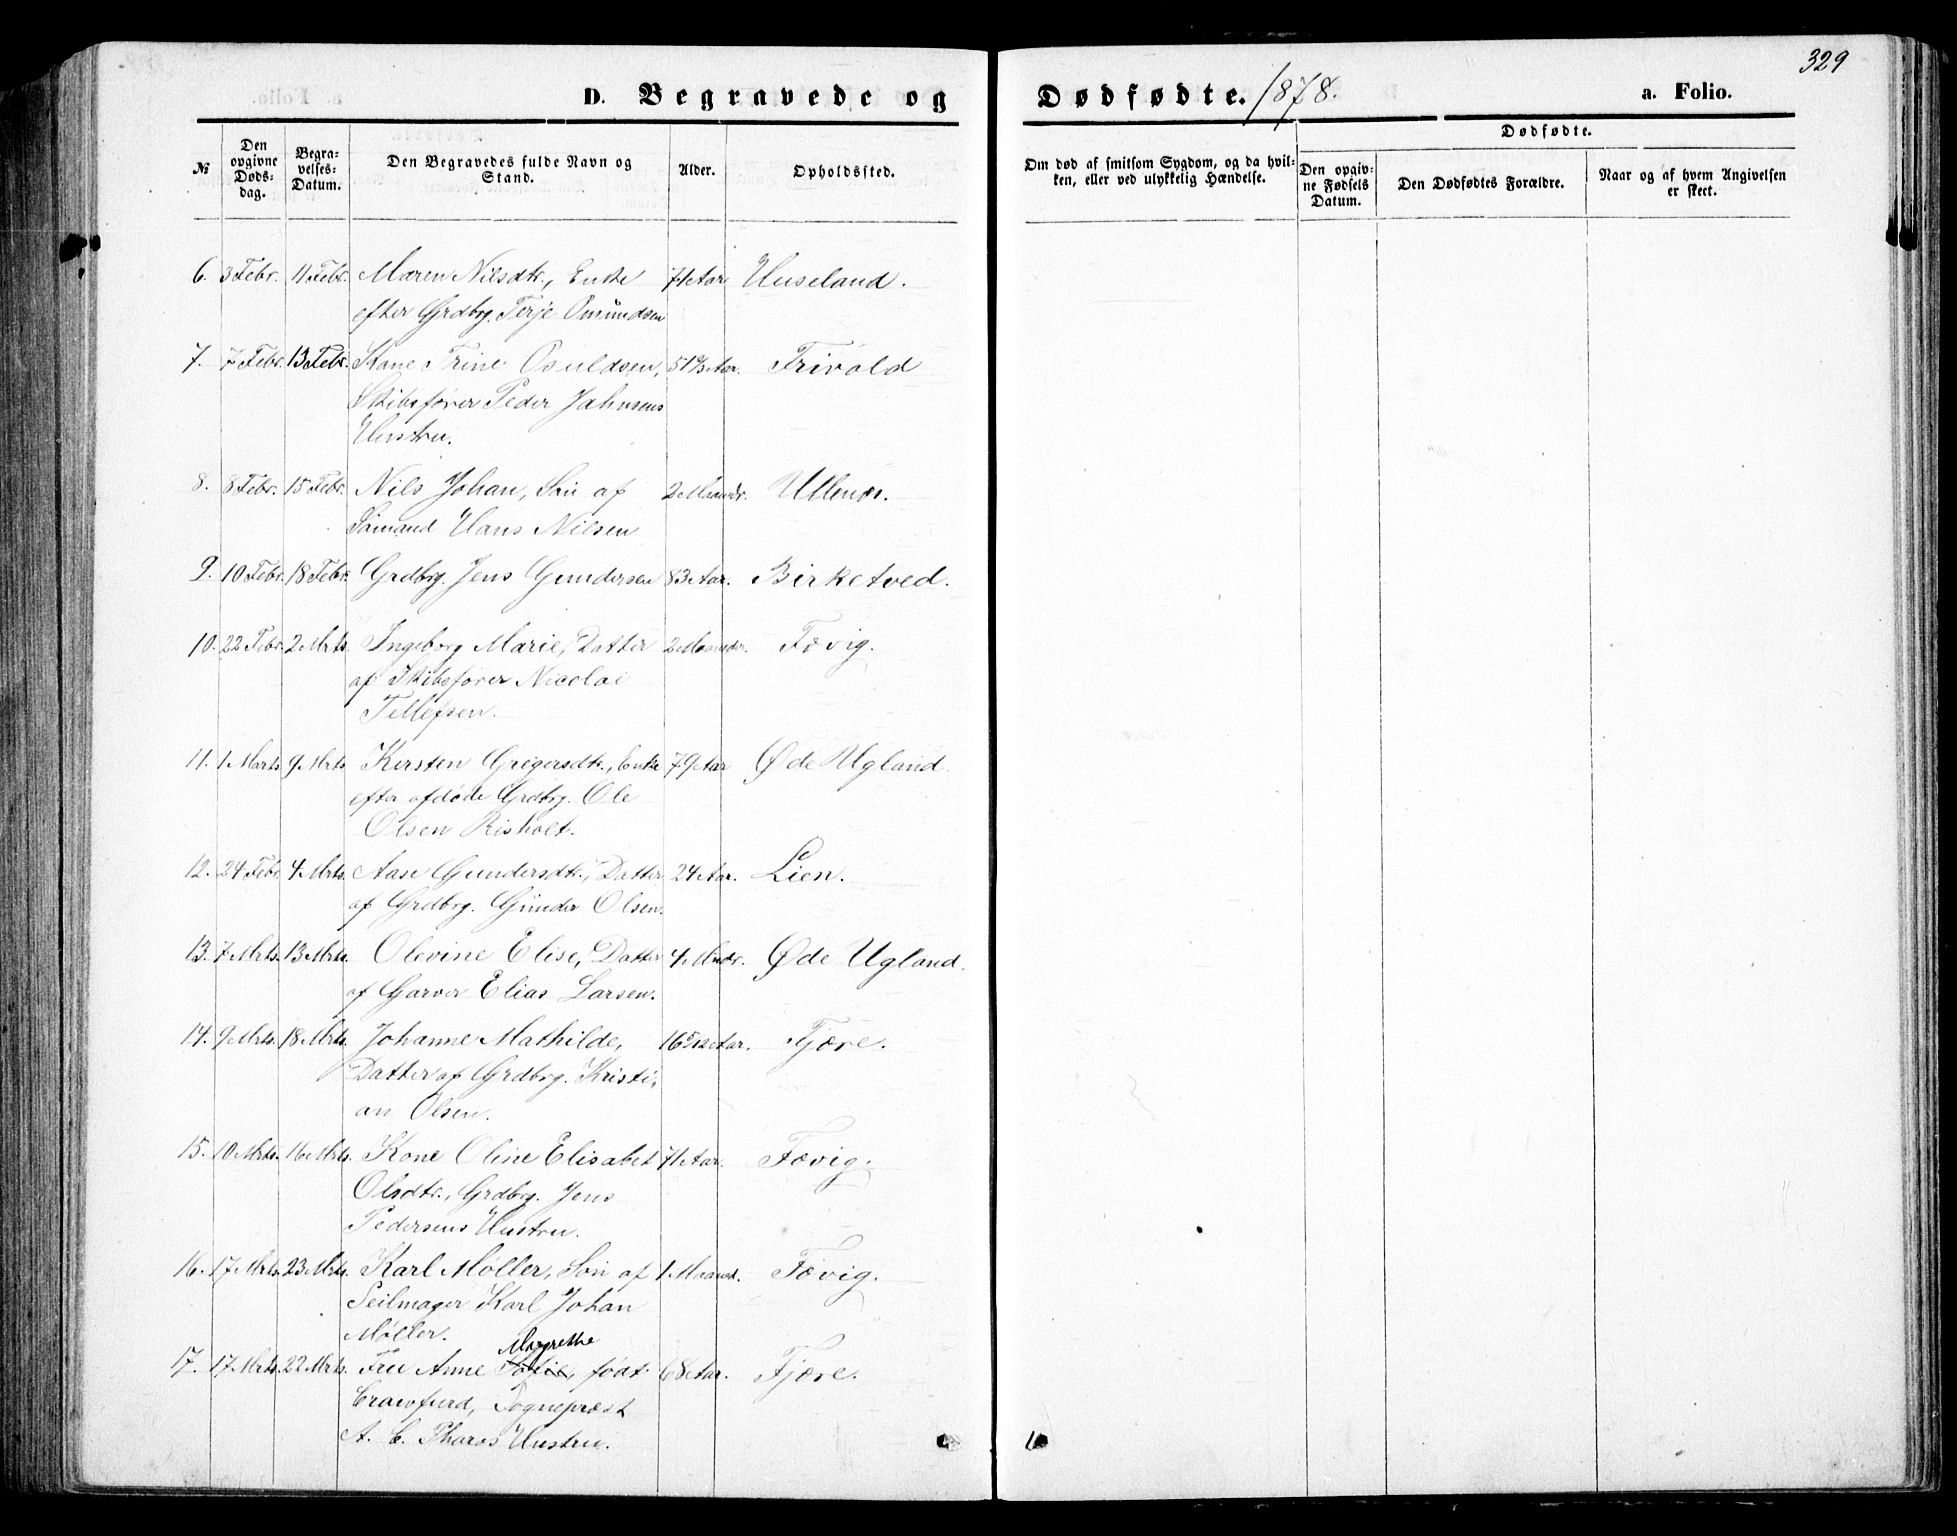 329
D. Begravede og Dødfødte. 1878. a. Folio.
№
Den opgivne Døds-dag.
Begra-velses-Datum.
Den Begravedes fulde Navn og Stand.
Alder.
Opholdssted.
Om død af smitsom Sygdom, og da hvil-ken, eller ved ulykkelig Hændelse.
Dødfødte.
Den opgiv-ne Fødsels Datum.
Den Dødfødtes Forældre.
Naar og af hvem Angivelsen er skeet.
6. 3 Febr. 11 Febr. Maren Nilsdtr., Enke 71 Aar Huseland.
efter Grdbrg. Terje Omundsen
7. 7 Febr. 13 Febr. Kone Trine Osuldsen, Aar. Trivold
Skibsfører Peder Jahnsens
Hustru.
8. 8 Febr. 15 Febr. Nils Johan, Søn af 2 Maaneder. Ullenæs.
Sømand Hans Nilsen
9. 10 Febr. 18 Febr. Grdbrg. Jens Gundersen 83 Aar. Birketved.
10. 22 Febr. 2 Mrts. Ingeborg Marie, Datter 2 Maaneder. Fævig.
af Skibsfører Nicolai
Tellefsen.
11. 1 Marts 9 Mrts. Kirsten Grigersdtr., Enke 79 Aar Øde Ugland.
efter afdøde Grdbrg. Ole
Olsen Risholt.
12. 24 Febr. 4 Mrts. Aase Gundersdtr., Datter 24 Aar. Lien.
af Grdbrg. Gunder Olsen.
13. 7 Mrts. 13 Mrts. Olevine Elise, Datter 4 Mndr. Øde Ugland.
af Garver Elias Larsen.
14. 9 Mrts. 18 Mrts. Johanne Mathilde, 16 5/12 Aar. Fjære.
Datter af Grdbrg. Kristi-
an Olsen.
15. 10 Mrts. 16 Mrts. Kone Oline Elisabet 71 Aar. Fævig.
Olsdtr., Grdbrg. Jens
Pedersens Hustru.
16. 17 Mrts. 23 Mrts. Karl Møller, Søn af 1 Maaned. Fævig.
Seilmager Karl Johan
Møller.
Margrethe
17. 17 Mrts. 22 Mrts. Fru Anne Sofie, født 68 Aar. Fjære.
Crawfurd, Sogneprest
A. C. Pharos Hustru.